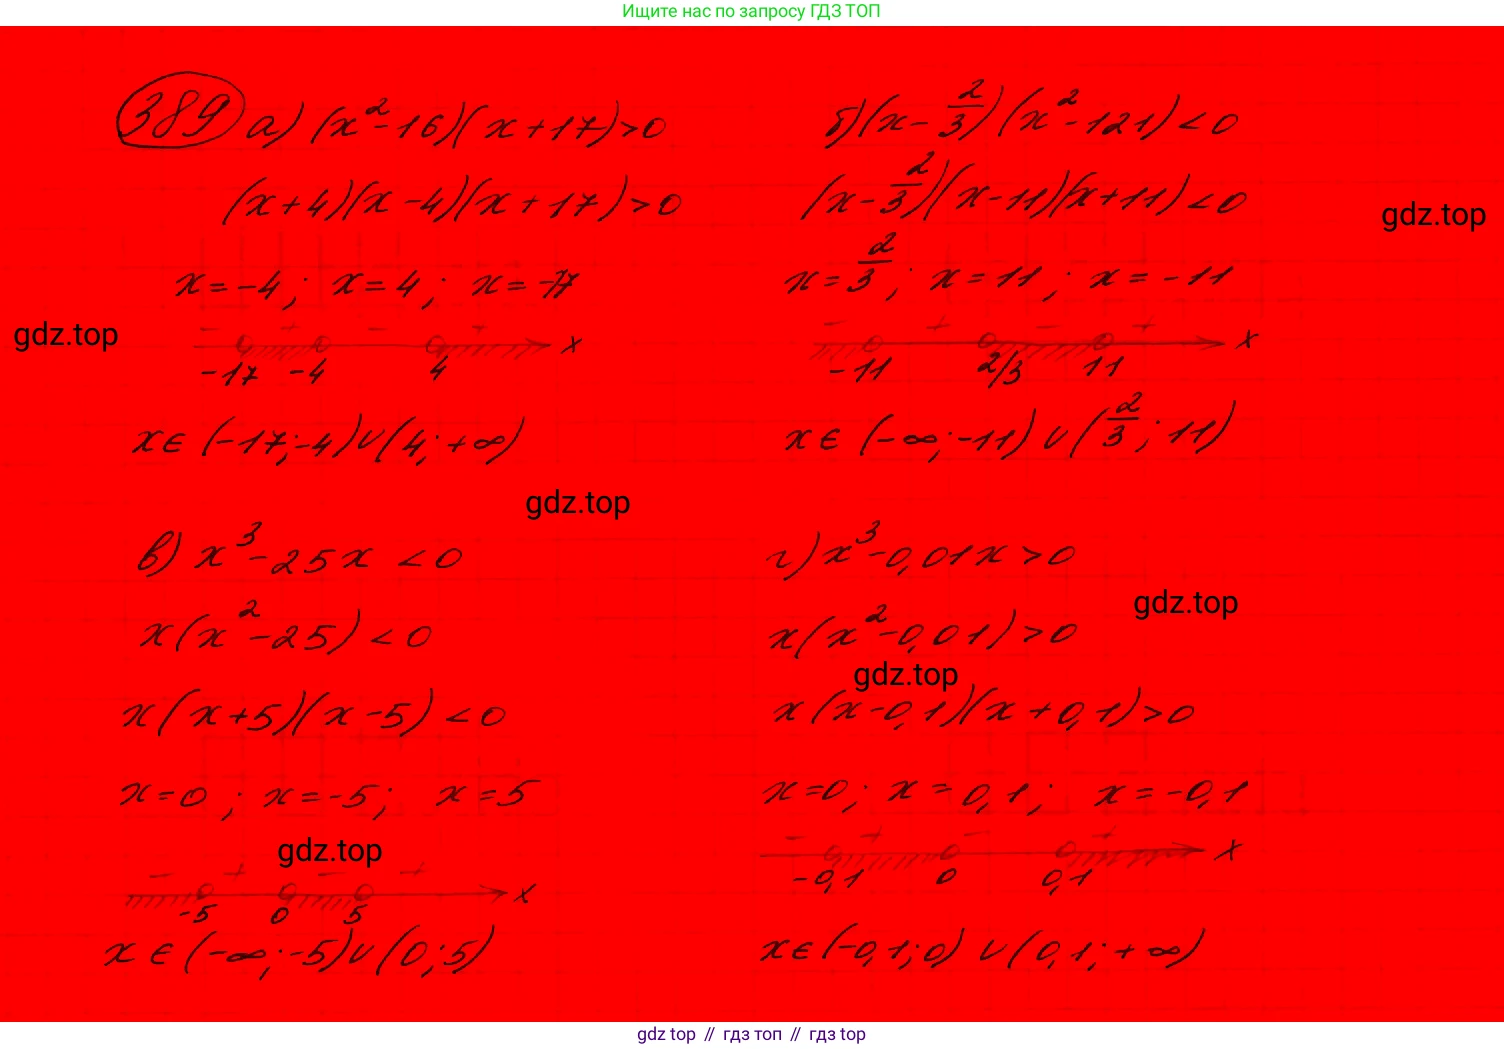 Ищите нас по запросу ГДЗ ТОП
389 а) (x²-16)(x+17)>0
(x+4)(x-4)(x+17)>0
x=-4; x=4; x=-17
- + - +
-17 -4 4 x
x∈(-17;-4)∪(4;+∞)
б)(x-2/3)(x²-121)<0
(x-2/3)(x-11)(x+11)<0
x=2/3; x=11; x=-11
- + - +
-11 2/3 11 x
x∈(-∞;-11)∪(2/3;11)
в) x³-25x<0
x(x²-25)<0
x(x+5)(x-5)<0
x=0; x=-5; x=5
- + - +
-5 0 5 x
x∈(-∞;-5)∪(0;5)
г) x³-0,01x>0
x(x²-0,01)>0
x(x-0,1)(x+0,1)>0
x=0; x=0,1; x=-0,1
- + - +
-0,1 0 0,1 x
x∈(-0,1;0)∪(0,1;+∞)
gdz.top
gdz.top
gdz.top
gdz.top
gdz.top
gdz.top
gdz top // гдз топ // гдз top